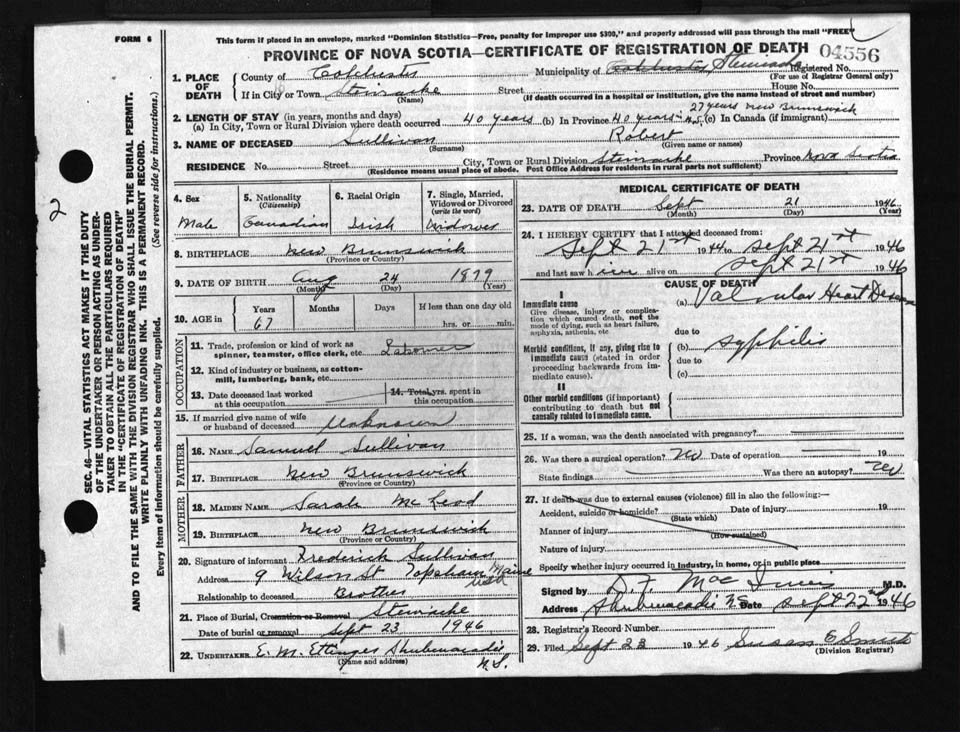 FORM 6
This form if placed in an envelope, marked "Dominion Statistics—Free, penalty for improper use $300," and properly addressed will pass through the mail "FREE"
PROVINCE OF NOVA SCOTIA—CERTIFICATE OF REGISTRATION OF DEATH
04556
1. PLACE OF DEATH
County of Colchester Municipality of Colchester, Stewiacke Registered No.
(For use of Registrar General only)
If in City or Town Stewiacke Street House No.
(Name) (If death occurred in a hospital or institution, give the name instead of street and number)
27 years New Brunswick
2. LENGTH OF STAY (in years, months and days)
(a) In City, Town or Rural Division where death occurred 40 years (b) In Province 40 years N.S. (c) In Canada (if immigrant)
3. NAME OF DECEASED Sullivan Robert
(Surname) (Given name or names)
RESIDENCE No. Street City, Town or Rural Division Stewiacke Province Nova Scotia
(Residence means usual place of abode. Post Office Address for residents in rural parts not sufficient)
4. Sex Male
5. Nationality (Citizenship) Canadian
6. Racial Origin Irish
7. Single, Married, Widowed or Divorced (write the word) Widower
8. BIRTHPLACE New Brunswick
(Province or Country)
9. DATE OF BIRTH Aug 24 1879
(Month) (Day) (Year)
10. AGE Years 67 Months Days If less than one day old
hrs. or min.
OCCUPATION
11. Trade, profession or kind of work as spinner, teamster, office clerk, etc. Labourer
12. Kind of industry or business, as cotton-mill, lumbering, bank, etc.
13. Date deceased last worked at this occupation
14. Total yrs. spent in this occupation
15. If married give name of wife or husband of deceased Unknown
FATHER
16. NAME Samuel Sullivan
17. BIRTHPLACE New Brunswick
(Province or Country)
MOTHER
18. MAIDEN NAME Sarah McLeod
19. BIRTHPLACE New Brunswick
(Province or Country)
20. Signature of informant Frederick Sullivan
Address 9 Wilson St Topsham Maine USA
Relationship to deceased Brother
21. Place of Burial, Cremation or Removal Stewiacke
Date of burial or removal Sept 23 1946
22. UNDERTAKER E. M. Ettinger Shubenacadie N.S.
(Name and address)
MEDICAL CERTIFICATE OF DEATH
23. DATE OF DEATH Sept 21 1946
(Month) (Day) (Year)
24. I HEREBY CERTIFY that I attended deceased from:
Sept 21st 1944 to Sept 21st 1946
and last saw h alive on Sept 21st 1946
CAUSE OF DEATH
I
Immediate cause
Give disease, injury or complication which caused death, not the mode of dying, such as heart failure, asphyxia, asthenia, etc
(a) Valvular Heart Disease
due to
Morbid conditions, if any, giving rise to immediate cause (stated in order proceeding backwards from immediate cause).
(b) Syphilis
due to
(c)
II
Other morbid conditions (if important) contributing to death but not causally related to immediate cause.
25. If a woman, was the death associated with pregnancy?
26. Was there a surgical operation? No Date of operation 19
State findings Was there an autopsy? No
27. If death was due to external causes (violence) fill in also the following:—
Accident, suicide or homicide? Date of injury 19
(State which)
Manner of injury
(How sustained)
Nature of injury
Specify whether injury occurred in Industry, in home, or in public place
Signed by D. F. MacInnis M.D.
Address Shubenacadie N.S. Date Sept 22nd 1946
28. Registrar's Record Number
29. Filed Sept 23 1946 Susan E Smith
(Division Registrar)
2
SEC. 46—VITAL STATISTICS ACT MAKES IT THE DUTY
OF THE UNDERTAKER OR PERSON ACTING AS UNDERTAKER
TO OBTAIN ALL THE PARTICULARS REQUIRED
IN THE "CERTIFICATE OF REGISTRATION OF DEATH"
AND TO FILE THE SAME WITH THE DIVISION REGISTRAR WHO SHALL ISSUE THE BURIAL PERMIT.
WRITE PLAINLY WITH UNFADING INK. THIS IS A PERMANENT RECORD.
Every item of information should be carefully supplied. (See reverse side for instructions.)